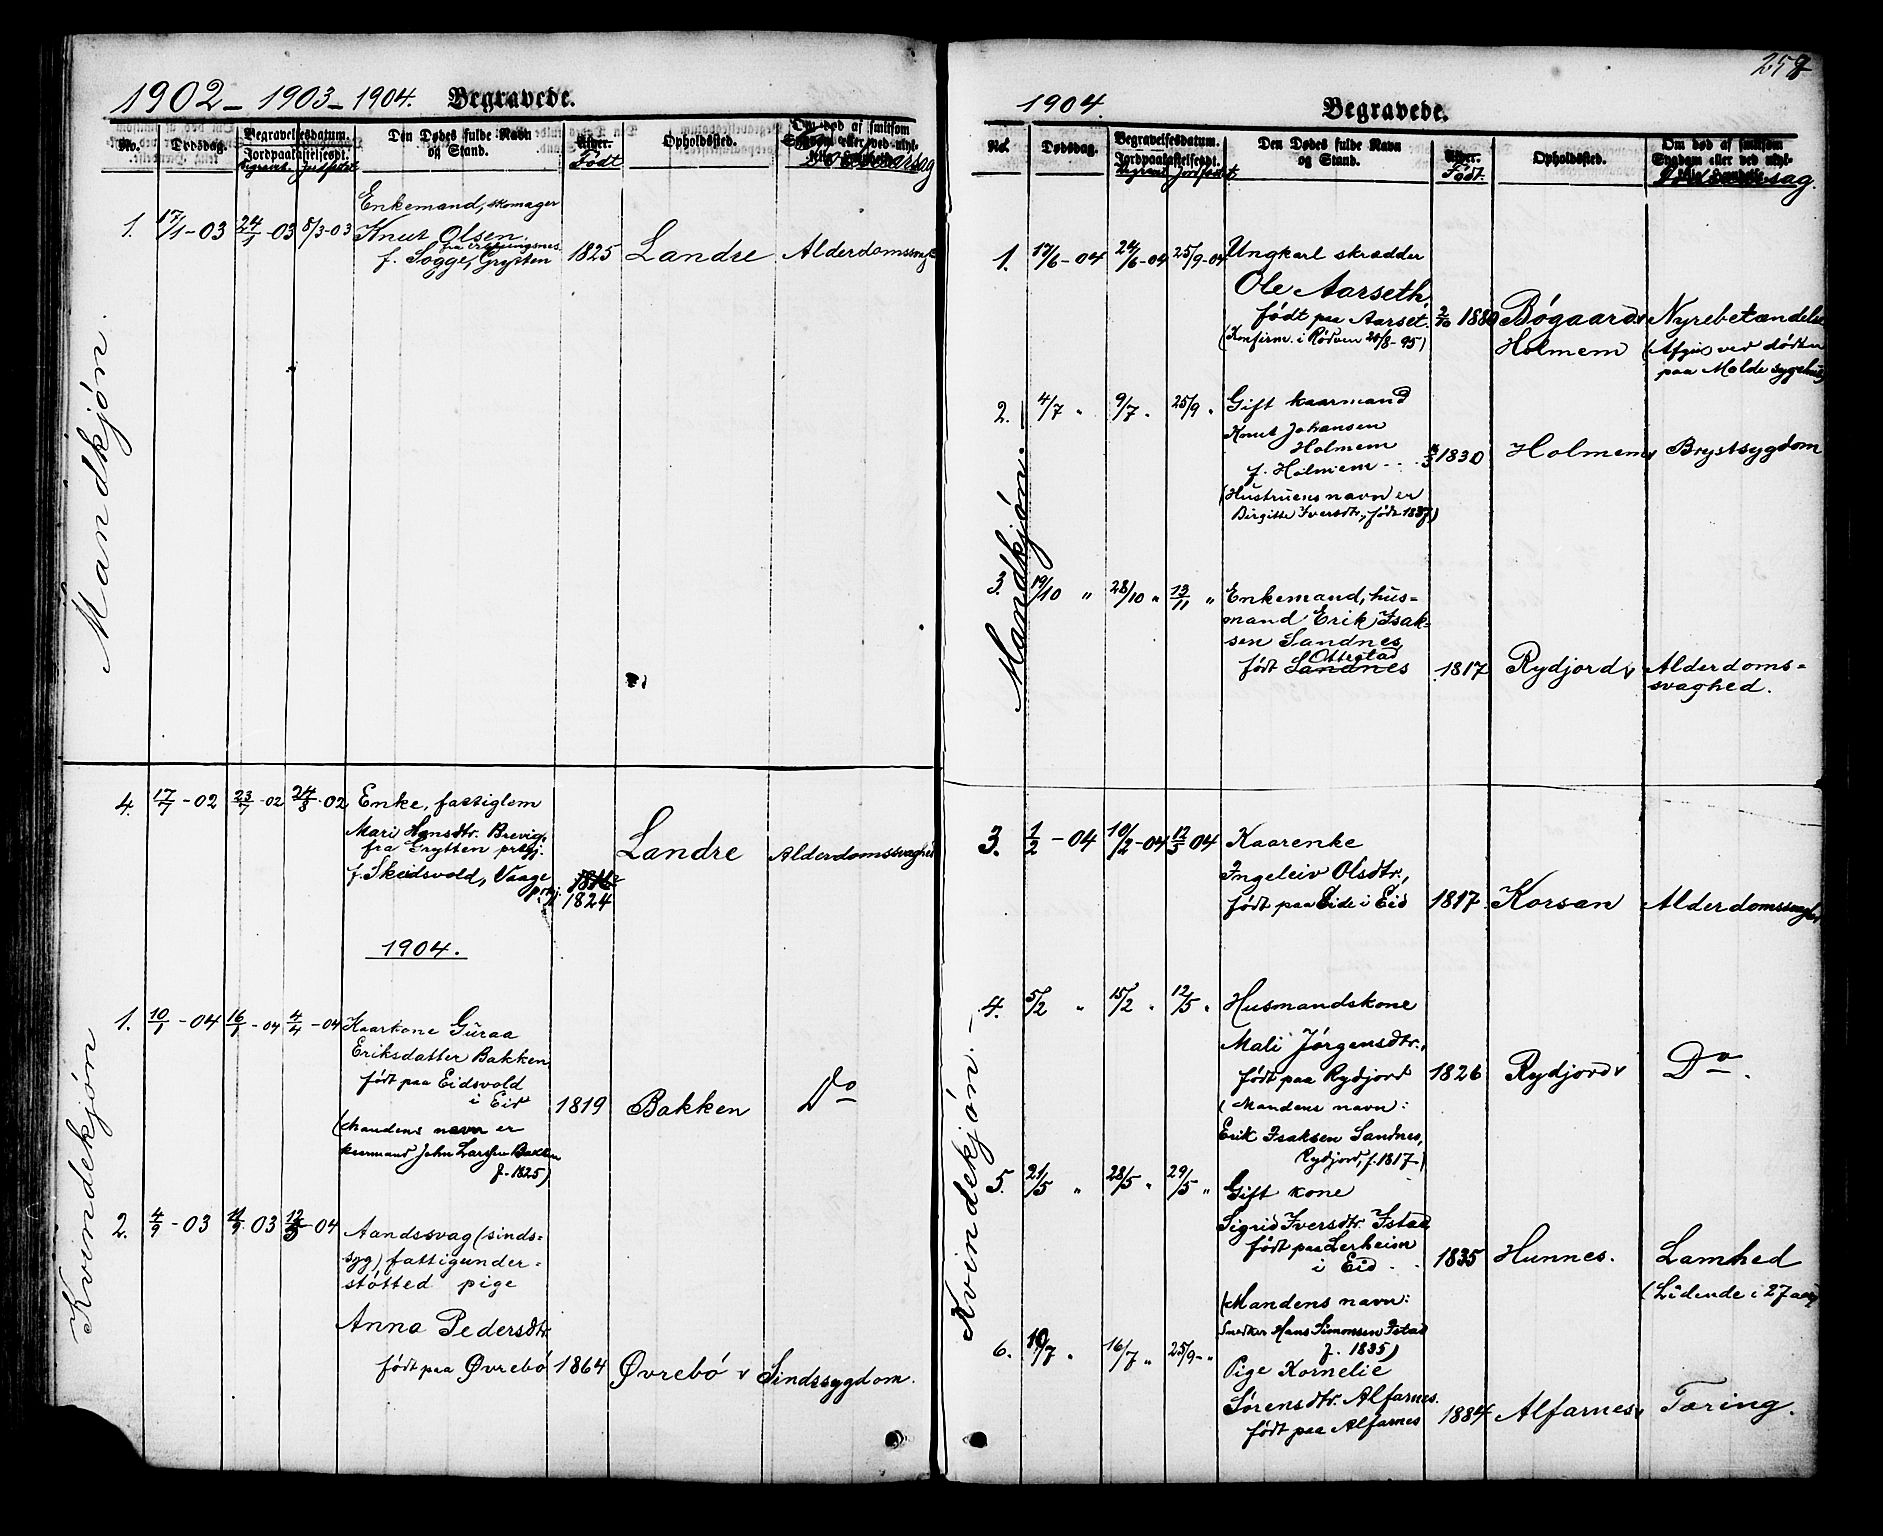 1902 – 1903 – 1904. Begravede.
No. Dødsdag. Begravelsesdatum. Jordpaakastelsesdt. Den Dødes fulde Navn og Stand. Alder. Født Opholdssted. Dødsaarsag
Mandkjøn.
Enkemand, skomager
1. 17/1-03 24/1-03 8/3-03 Knut Olsen
f. Sogge, Grytten 1825 Landre Alderdomssvagh
4. 17/7-02 23/7-02 24/8-02 Enke, fattiglem
Mari Hansdtr. Brevig,
fra Grytten prgj. Landre Alderdomssvaghed
f. Skeidsvold, Vaage
prgj. 1824
1904.
Kvindekjøn
1. 10/1-04 16/1-04 4/4-04 Kaarkone Guraa
Eriksdatter Bakken
født paa Eidsvold
i Eid 1819 Bakken Do
(Mandens navn er
kaarmand John Larsen Bakken
f. 1825)
2. 4/9-03 11/9-03 12/5-04 Aandssvag (sinds-
syg) fattigunder-
støtted pige
Anna Pedersdtr.
født paa Øvrebø 1864 Øvrebø v Sindssygdom.
1904. Begravede.
No. Dødsdag. Begravelsesdatum. Jordpaakastelsesdt. Den Dødes fulde Navn og Stand. Alder. Født. Opholdssted. Om død af smitsom Sygdom eller ved ulyk- Dødsaarsag.
Mandkjøn.
1. 17/6-04 24/6-04 25/9-04 Ungkarl skrædder
Ole Aarseth,
født paa Aarset. 2/10 1880 Bøgaard v Nyrebetændelse
(Konfirm. i Rødven 20/8-95) Holmem (Afgik ved døden
paa Molde sygehus)
2. 4/7 " 9/7 " 25/9 " Gift kaarmand
Knut Johansen
Holmem
f. Holmem 1830 Holmem v Brystsygdom
(Hustruens navn er
Birgitte Iversdtr., født 1837)
3. 19/10 " 28/10 " 13/11 " Enkemand, hus-
mand Erik Isak-
sen Sandnes
Ottestad
født Sandnes 1817 Rydjord v Alderdoms-
svaghed.
Kvindekjøn.
3. 1/2-04 10/2-04 12/5 04 Kaarenke
Ingeleiv Olsdtr.,
født paa Eide i Eid 1817 Korsan Alderdomssvagh
4. 5/2 " 15/2 " 12/5 " Husmandskone
Mali Jørgensdtr.,
født paa Rydjord 1826 Rydjord v Do.
(Mandens navn:
Erik Isaksen Sandnes,
Rydjord, f. 1817)
5. 21/5 " 28/5 " 29/5 " Gift kone
Sigrid Iversdtr. Istad
født paa Lerheim
i Eid 1835 Hunnes. Lamhed
(Lidende i 27 aar)
(Mandens navn:
Snedker Hans Simonsen Istad
f. 1835)
6. 10/7 " 16/7 " 25/9 " Pige Kornelie
Sørensdtr. Alfarnes.
født paa Alfarnes 1884 Alfarnes v Tæring.